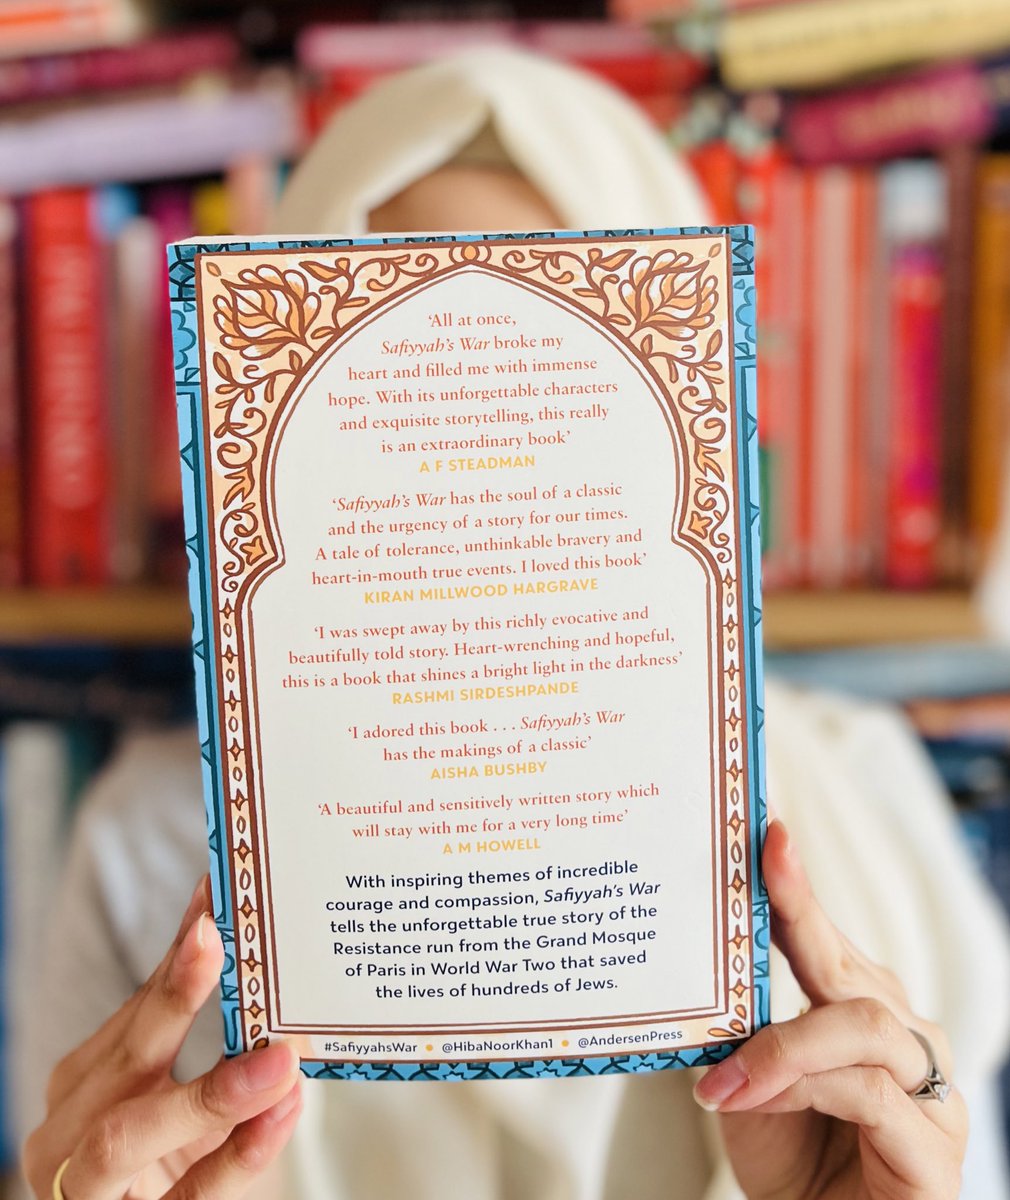 ‘All at once,
Safiyyah’s War broke my
heart and filled me with immense
hope. With its unforgettable characters
and exquisite storytelling, this really
is an extraordinary book’
A F STEADMAN
‘Safiyyah’s War has the soul of a classic
and the urgency of a story for our times.
A tale of tolerance, unthinkable bravery and
heart-in-mouth true events. I loved this book’
KIRAN MILLWOOD HARGRAVE
‘I was swept away by this richly evocative and
beautifully told story. Heart-wrenching and hopeful,
this is a book that shines a bright light in the darkness’
RASHMI SIRDESHPANDE
‘I adored this book . . . Safiyyah’s War
has the makings of a classic’
AISHA BUSHBY
‘A beautiful and sensitively written story which
will stay with me for a very long time’
A M HOWELL
With inspiring themes of incredible
courage and compassion, Safiyyah’s War
tells the unforgettable true story of the
Resistance run from the Grand Mosque
of Paris in World War Two that saved
the lives of hundreds of Jews.
#SafiyyahsWar • @HibaNoorKhan1 • @AndersenPress